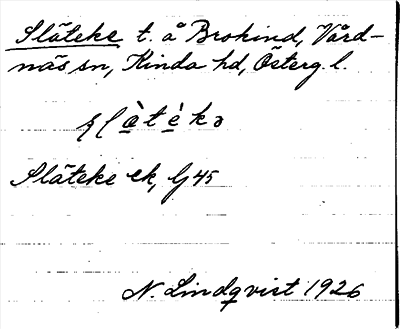 Släteke t. å Brokind, Vård-
näs sn, Kinda hd, Österg. l.
Släteke ek, Gj 45
N. Lindqvist 1926